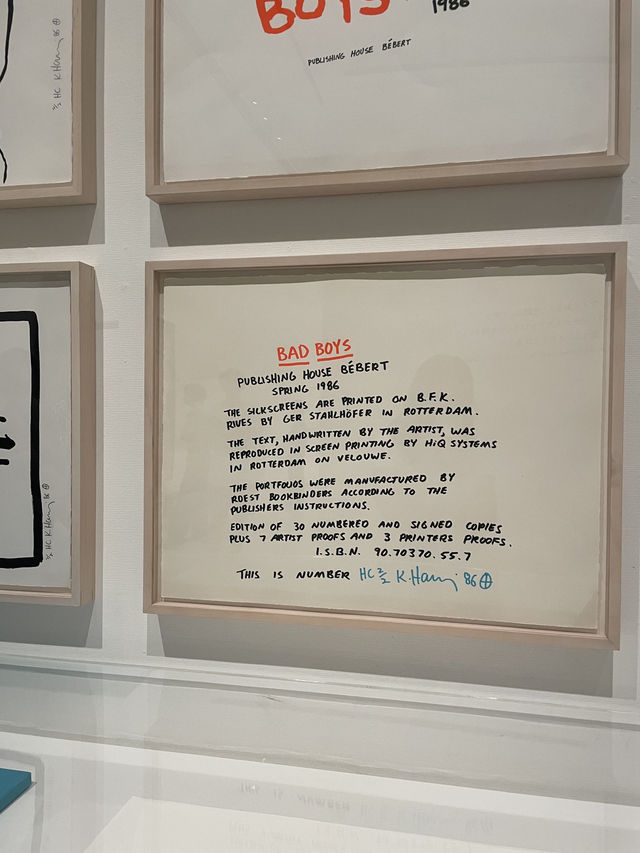 BOYS
1986
PUBLISHING HOUSE BÉBERT
HC K.Haring 86
BAD BOYS
PUBLISHING HOUSE BÉBERT
SPRING 1986
THE SILKSCREENS ARE PRINTED ON B.F.K.
RIVES BY GER STAHLHÖFER IN ROTTERDAM.
THE TEXT, HANDWRITTEN BY THE ARTIST, WAS
REPRODUCED IN SCREEN PRINTING BY HiQ SYSTEMS
IN ROTTERDAM ON VELOUWE.
THE PORTFOLIOS WERE MANUFACTURED BY
ROEST BOOKBINDERS ACCORDING TO THE
PUBLISHERS INSTRUCTIONS.
EDITION OF 30 NUMBERED AND SIGNED COPIES
PLUS 7 ARTIST PROOFS AND 3 PRINTERS PROOFS.
I.S.B.N. 90.70370.55.7
THIS IS NUMBER HC 2/2 K.Haring 86
HC K.Haring 86